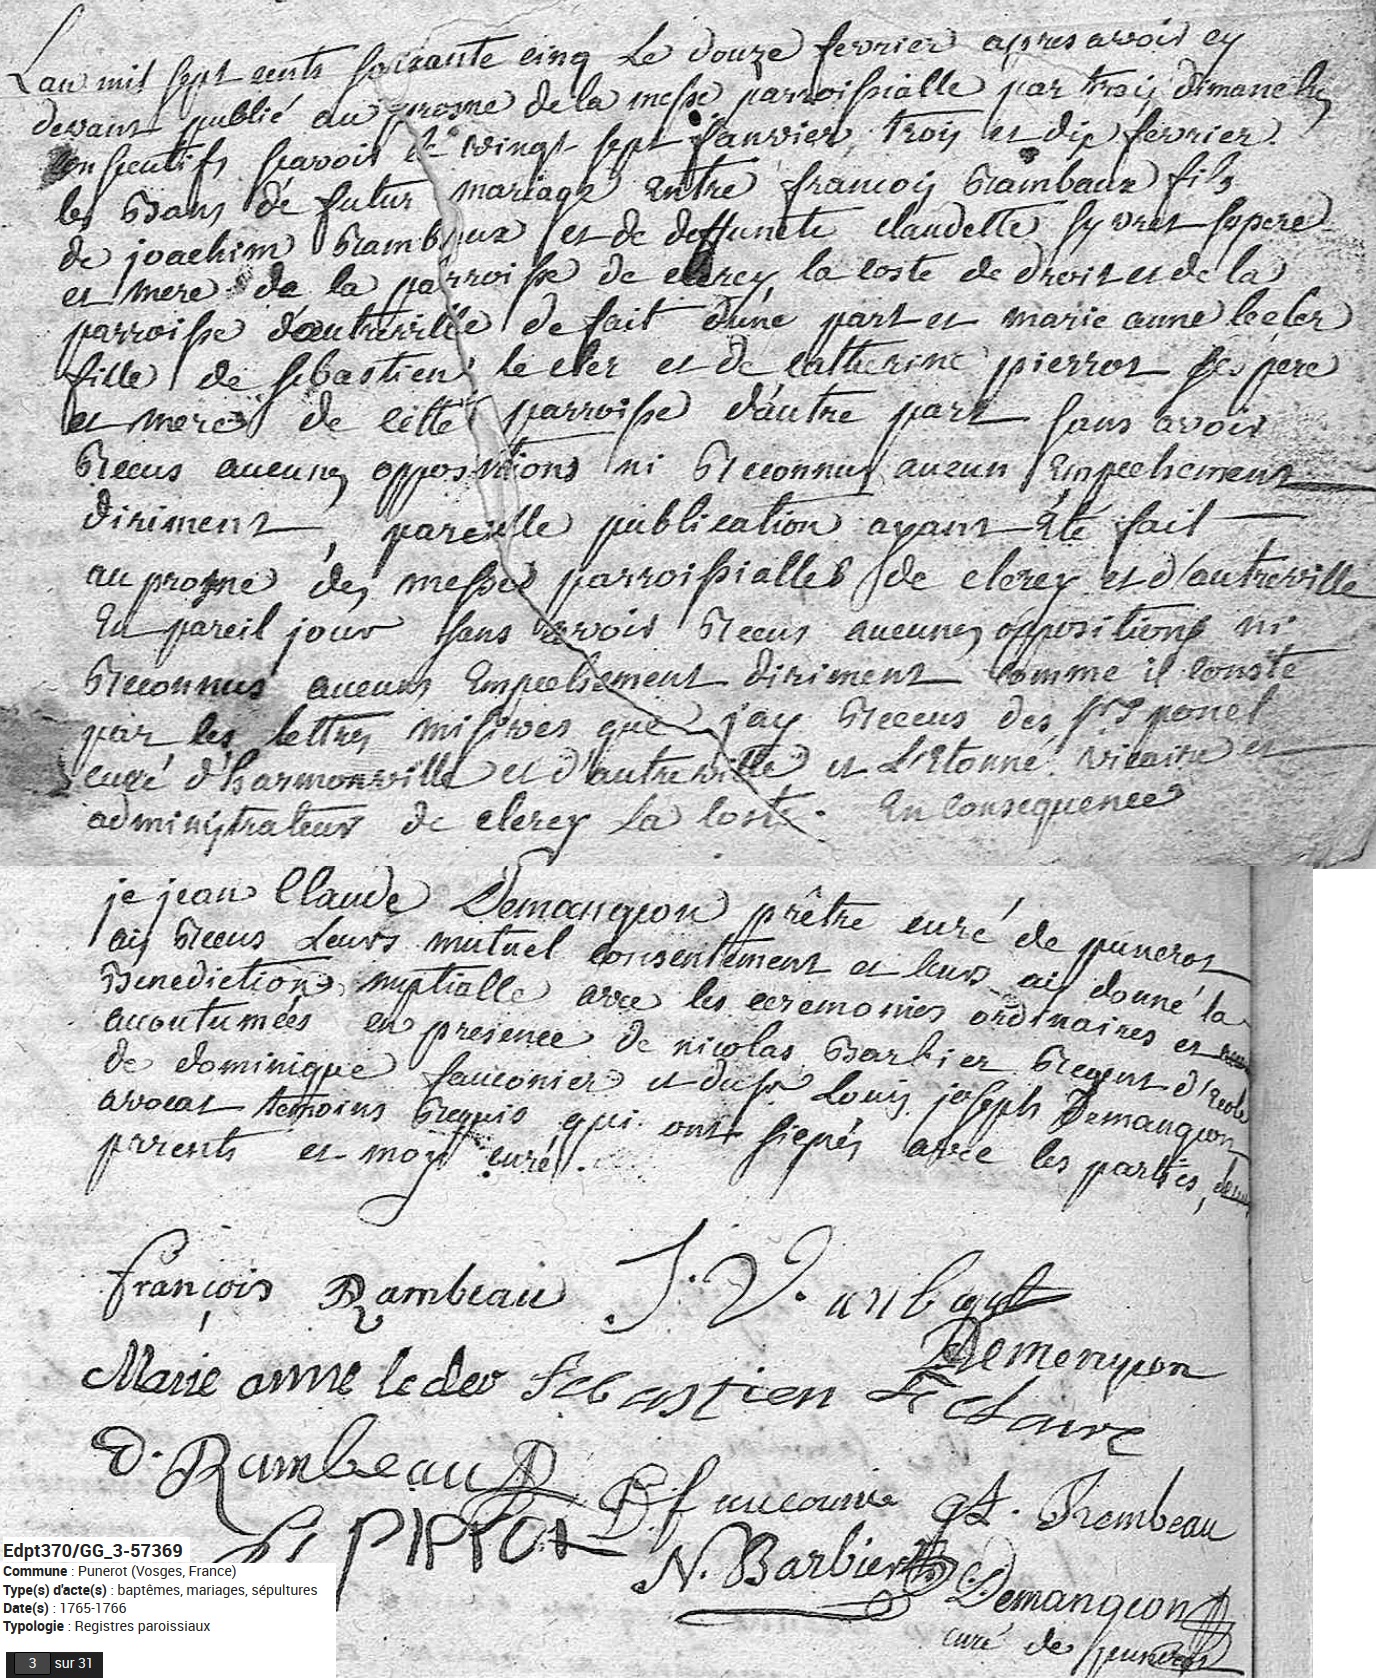 Lan mil sept cents soixante cinq Le douze fevrier apres avoir cy
devant publié au prosne de la messe parroissialle par trois dimanches
consecutifs scavoir le vingt sept janvier, trois et dix fevrier.
les Bans de futur mariage Entre francois Rambaux fils
de joachim Rambaux et de deffuncte claudette syvret ses pere
et mere de la parroisse de clerey la coste de droit et de la
parroisse d'autreville de fait d'une part et marie anne le cler
fille de sebastien le cler et de catherine pierrot ses pere
et mere de cette parroisse d'autre part sans avoir
Recus aucunes oppositions ni Reconnus aucun Empechement
diriment, pareille publication ayant Eté fait
au prosne des messes parroissialles de clerey et d'autreville
En pareil jour sans avoir Recus aucunes oppositions ni
Reconnus aucuns Empechement diriment comme il conste
par les lettres missives que j'ay Recus des srs ponel
curé d'harmonville et d'autreville et L'Etonné vicaire et
administrateur de clerey La coste. En consequence
je jean Claude Demangeon prêtre curé de punerot
ai Recus Leurs mutuel consentement et leurs ai donné la
Benediction nuptialle avec les ceremonies ordinaires et
accoutumées en presence de nicolas Barbier Regent d'Ecole
de dominique fauconier et du sr Louis joseph Demangeon
avocat temoins Requis qui ont signés avec les parties,
parents et moy curé.
françois Rambeau J. Vaubout
Demengeon
Marie anne le cler Sebastien Le Claire
D. Rambeau D. faucounie Rembeau
PIROT N. Barbier Demangeon
curé de punerot
Edpt370/GG_3-57369
Commune : Punerot (Vosges, France)
Type(s) d'acte(s) : baptêmes, mariages, sépultures
Date(s) : 1765-1766
Typologie : Registres paroissiaux
3 sur 31